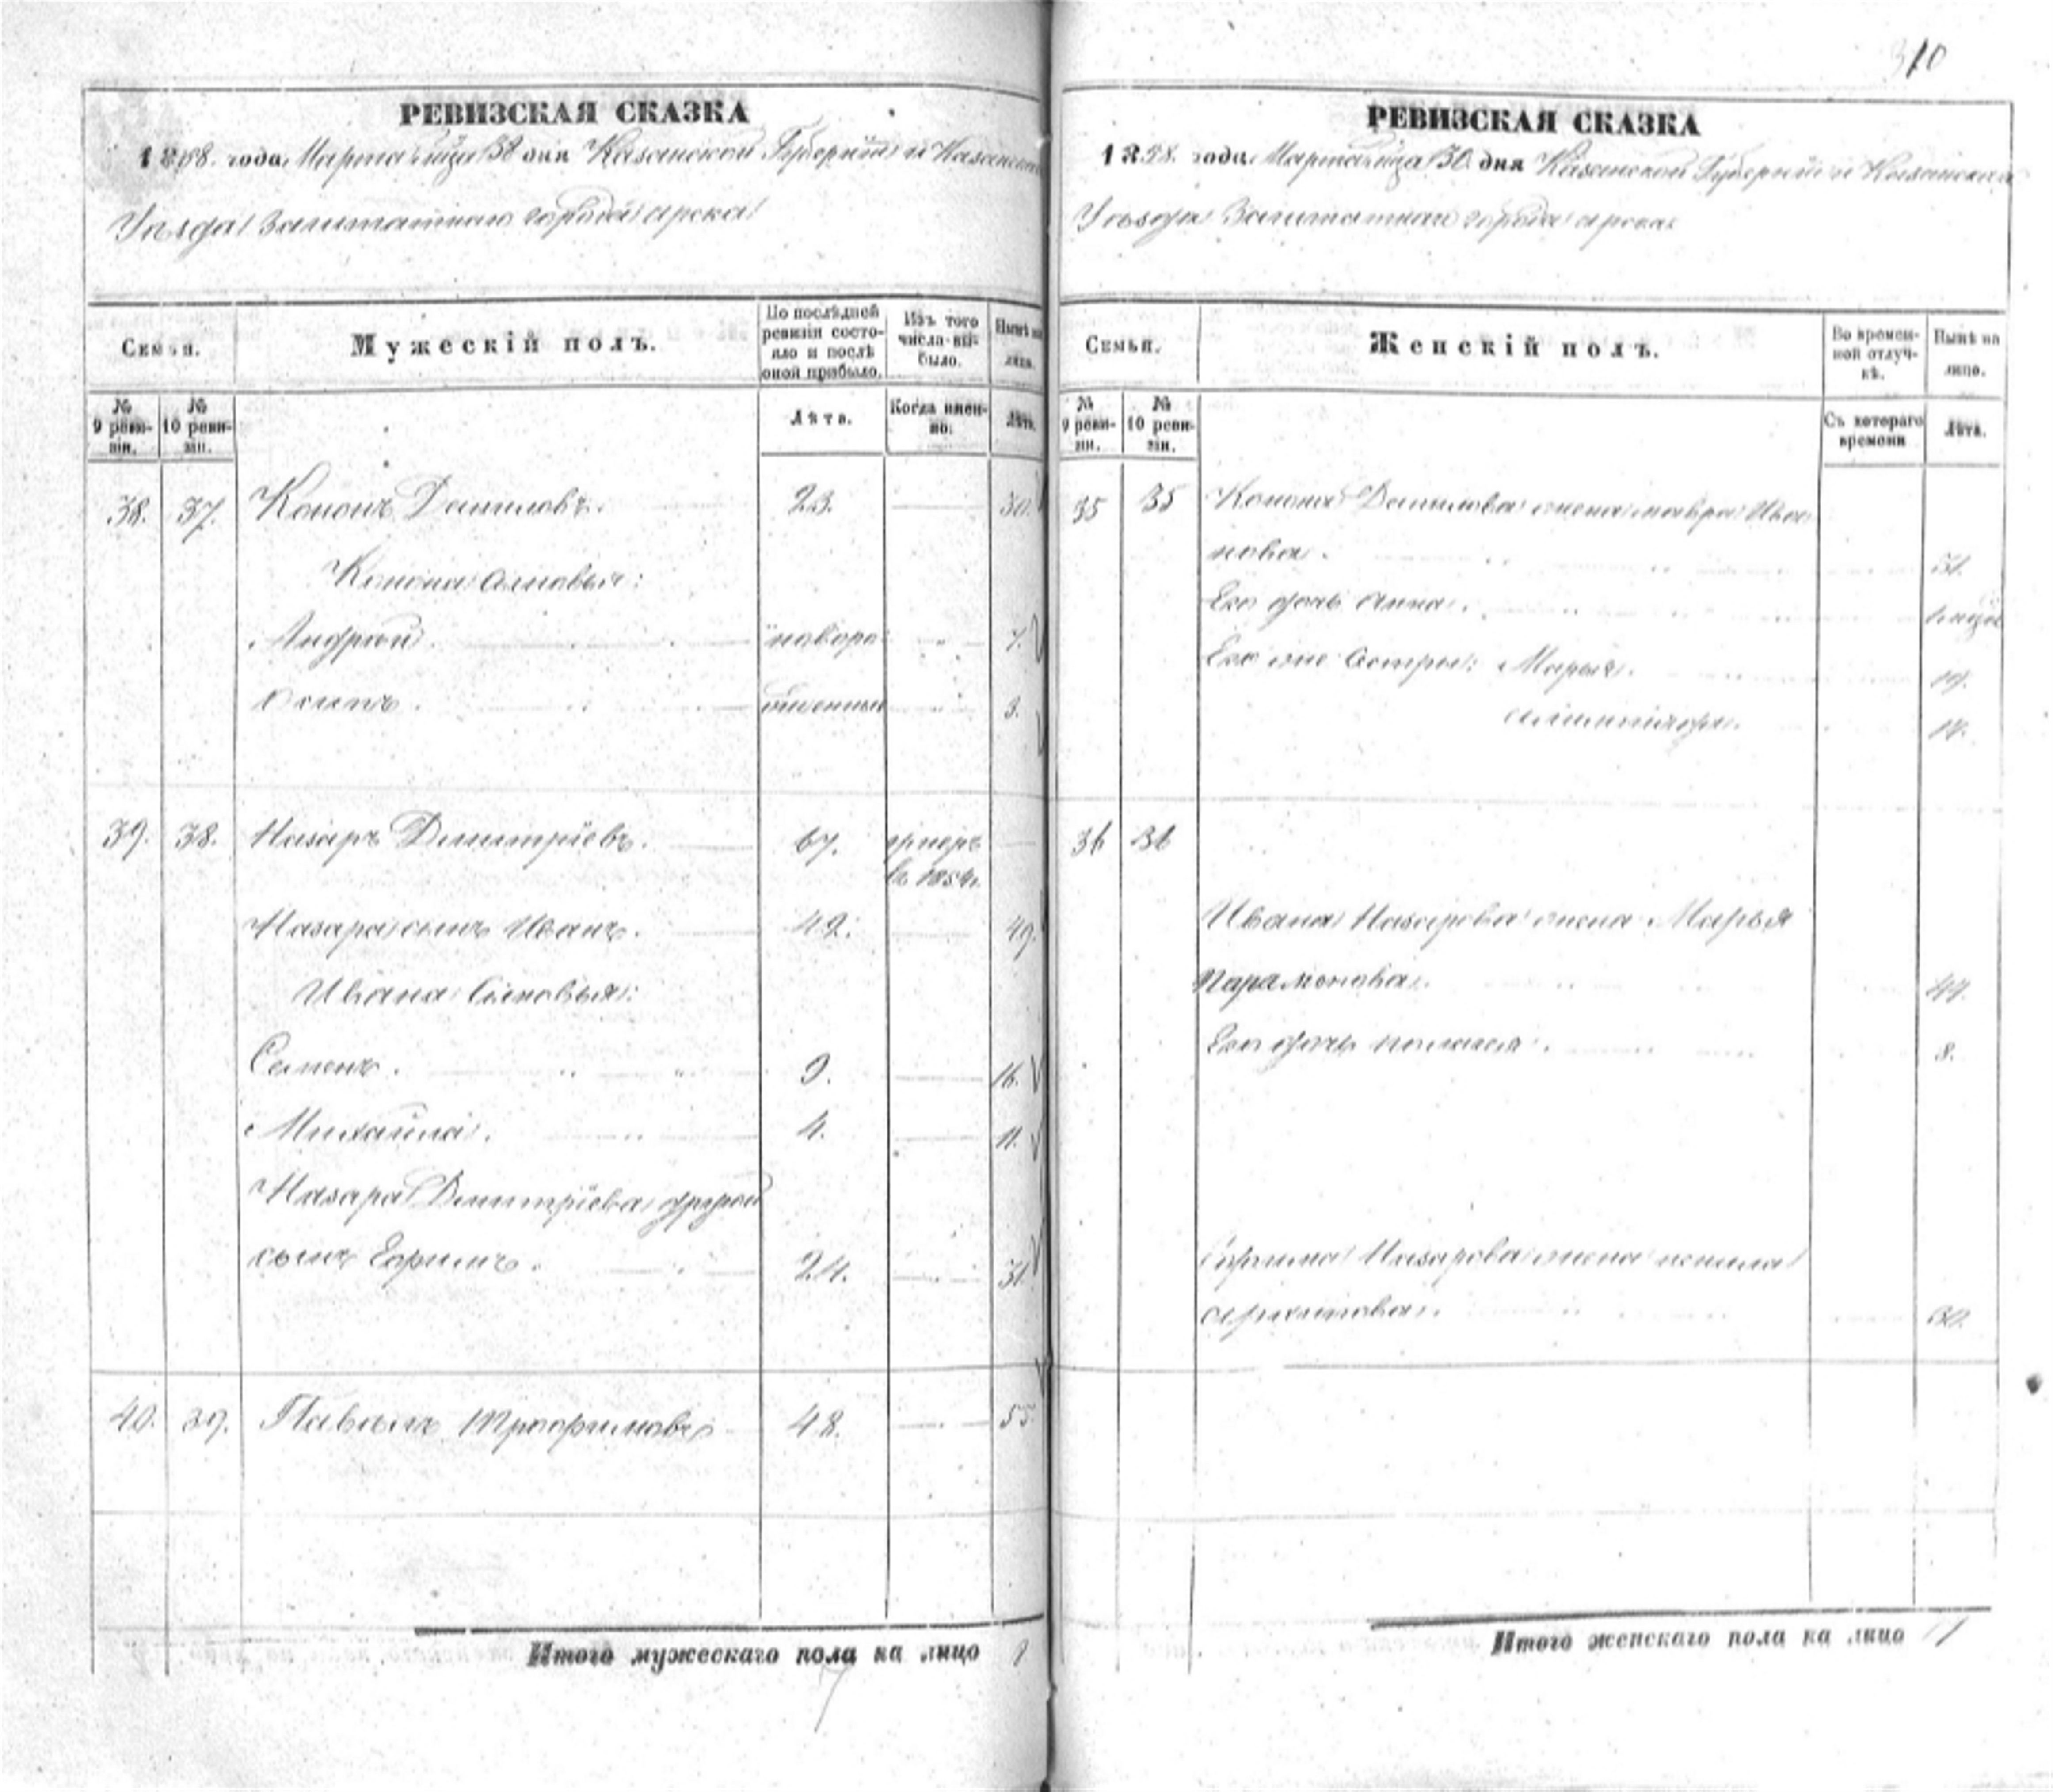 310
РЕВИЗСКАЯ СКАЗКА
1858. года Марта м-ца 30 дня Казанской Губерніи и Казанскаго
Уѣзда Заштатнаго города Арска
Семьи.
Мужескій полъ.
По послѣдней ревизіи состояло и послѣ оной прибыло.
Изъ того числа выбыло.
Нынѣ на лицо.
№ 9 ревизіи.
№ 10 ревизіи.
Лѣта.
Когда именно.
Лѣта.
38. 37. Кононъ Даниловъ. 23. 30.
Конона сыновья:
Андрей. новоро- 7.
Осипъ. жденные 3.
39. 38. Назаръ Димитріевъ. 67. умеръ
въ 1854.
Назара сынъ Иванъ. 42. 49.
Ивана Сыновья:
Семенъ. 9. 16.
Михайла. 4. 11.
Назара Димитріева другой
сынъ Ефимъ. 24. 31.
40. 39. Павелъ Трофимовъ 48. 55.
Итого мужескаго пола на лицо 9
7
РЕВИЗСКАЯ СКАЗКА
1858. года Марта м-ца 30. дня Казанской Губерніи и Казанскаго
Уѣзда Заштатнаго города Арска
Семьи.
Женскій полъ.
Во временной отлучкѣ.
Нынѣ на лицо.
№ 9 ревизіи.
№ 10 ревизіи.
Съ котораго времени
Лѣта.
35 35 Конона Данилова жена Мавра Ива
нова. 31.
Его дочь Анна.
Его же Сестры: Марья. 19.
17.
36 36
Ивана Назарова жена Марья
Парамонова. 44.
Его дочь Пелагея. 8.
Ефима Назарова жена
30.
Итого женскаго пола на лицо